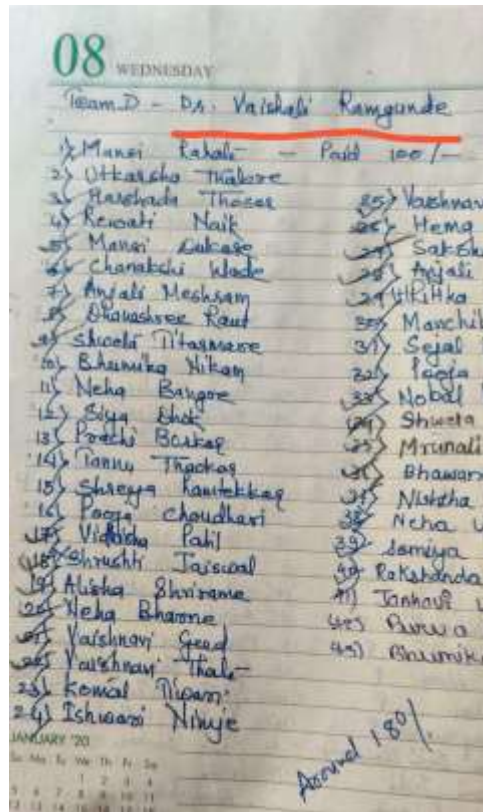 08 WEDNESDAY
Team D - Dr. Vaishali Ramgunde
1) Mansi Rahate - Paid 100/-
2) Utkarsha Thakre
3) Harshada
4) Rewati Naik
5) Mansi
6) Wade
7) Anjali Meshram
8) Dhanashree Raut
9) Titarmare
10) Bhumika Nikam
11) Neha Bangre
12) Siya Dhok
13) Prachi Borkar
14) Tannu Thaokar
15) Shreyya Ramtekkar
16) Pooja Choudhari
17) Patil
18) Shrushti Jaiswal
19) Alisha Shrirame
20) Neha Bharne
21) Vaishnavi Geed
22) Vaishnavi
23) Komal Tiwari
24) Ishwari Ninje
25) Vaishnav
26) Hema
27) Saksh
28) Anjali
29)
30) Manchi
31) Sejal
32) Pooja
33) Nobal
34) Shweta
35) Mrunali
36) Bhawan
37) Nishtha
38) Neha
39) Somiya
40) Rakshanda
41) Janhavi
42) Purva
43) Bhumik
Around 180/.
JANUARY '20
Su Mo Tu We Th Fr Sa
1 2 3 4
5 6 7 8 9 10 11